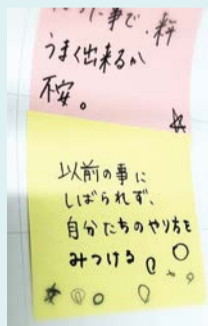 た事で、
うまく出来るか
不安。
以前の事に
しばられず、
自分たちのやり方を
みつける